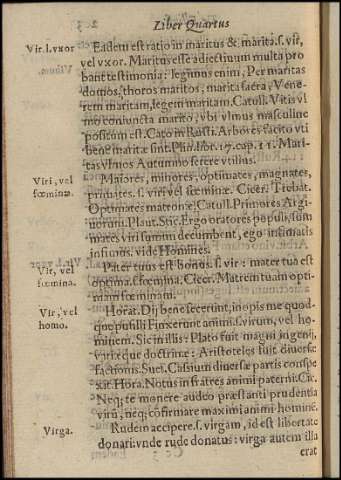 Liber Quartus
Vir. l. vxor
Eadem est ratio in maritus & marita. s. vir,
vel vxor. Maritus esse adiectiuum multa pro
bant testimonia: legimus enim, Per maritas
domos, thoros maritos, marita sacra, Vene-
rem maritam, legem maritam. Catull. Vitis vl
mo coniuncta marito, vbi vlmus masculine
positum est. Cato in Rusti. Arbores facito vti
bene maritæ sint. Plin. lib. 17. cap. 11. Mari-
tas vlmos Autumno serere vtilius.
Viri, vel
fœminæ.
Maiores, minores, optimates, magnates,
primates. s. viri vel fœminæ. Cicer. Trebat.
Optimates matronæ, Catull. Primores Argi
uorum. Plaut. Stic. Ergo oratores populi, sum
mates viri summi decumbent, ego infimatis
infimus. vide Homines.
Vir, vel
fœmina.
Pater tuus est bonus. s. vir: mater tua est
optima. s. fœmina. Cicer. Matrem tuam opti-
mam fœminam.
Vir, vel
homo.
Horat. Dij bene fecerunt, inopis me quod-
que pusilli Finxerunt animi. s. virum, vel ho-
minem. Sic in illis: Plato fuit magni ingenij,
variæque doctrinæ: Aristoteles fuit diuersæ
factionis. Suet. Cassium diuersæ partis conspe
xit. Hora. Notus in fratres animi paterni. Cic.
Neq; te monere audeo præstanti prudentia
virũ, neq; cõfirmare maximi animi hominẽ.
Virga.
Rudem accipere. s. virgam, id est libertate
donari: vnde rude donatus: virga autem illa
erat